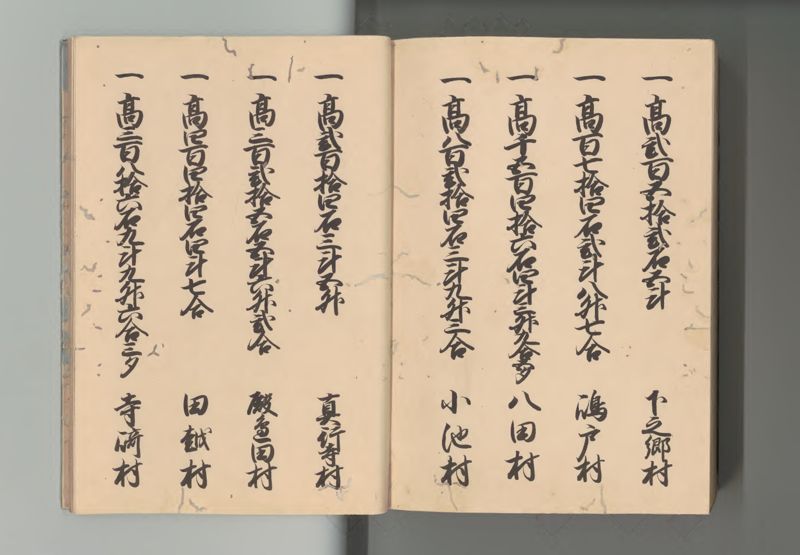 一 高弐百五拾弐石五斗 下之郷村
一 高百七拾四石弐斗八升七合 鴻戸村
一 高千五百四拾六石四斗三升九合壱夕 八田村
一 高八百弐拾四石三斗九升二合 小池村
一 高弐百拾四石三斗五升 真行寺村
一 高三百弐拾五石五斗六升弐合 殿邊田村
一 高四百四拾四石四斗七合 田越村
一 高三百八拾六石九斗九升六合三夕 寺﨑村